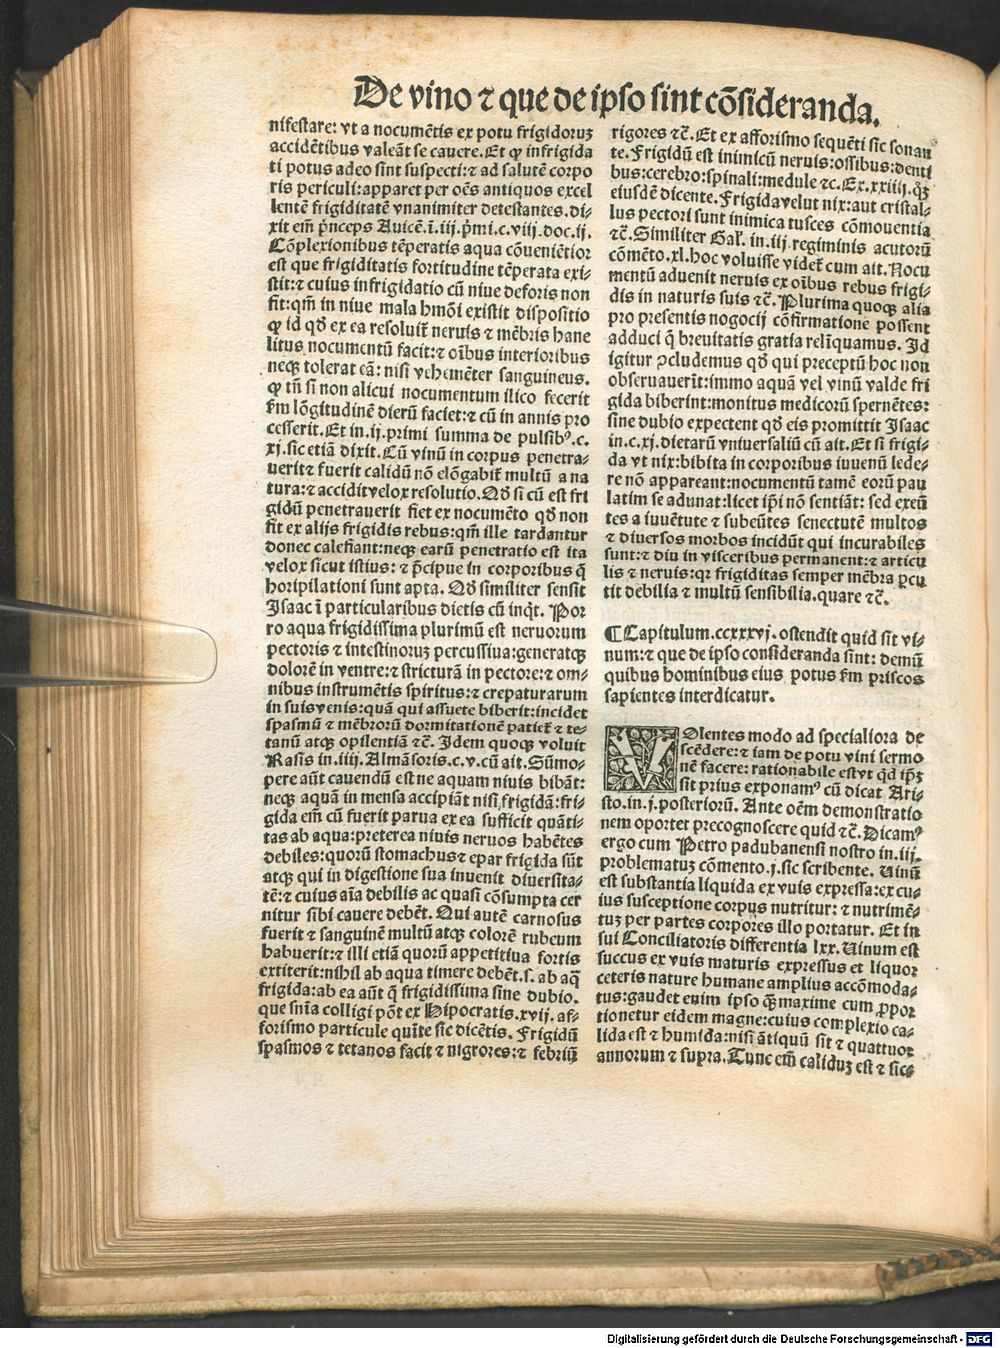 De vino ⁊ que de ipso sint cõsideranda.
nifestare: vt a nocumẽtis ex potu frigidoruꝫ
accidẽtibus valeãt se cauere. Et ꝙ infrigida
ti potus adeo sint suspecti: ⁊ ad salutẽ corpo
ris periculi: apparet per oẽs antiquos excel
lentẽ frigiditatẽ vnanimiter detestantes. di⸗
xit em̃ p̃nceps Auicẽ. ĩ. iij. p̃mi. c. viij. doc. ij.
Cõplexionibus tẽperatis aqua cõueniẽtior
est que frigiditatis fortitudine tẽperata exi⸗
stit: ⁊ cuius infrigidatio cũ niue deforis non
fit: qm̃ in niue mala hmõi existit dispositio
ꝙ id qd̃ ex ea resoluit̃ neruis ⁊ mẽbris hane
litus nocumentũ facit: ⁊ oĩbus interioribus
neqꝫ tolerat eã: nisi vehemẽter sanguineus.
ꝙ tñ si non alicui nocumentum ilico fecerit
fm lõgitudinẽ dierũ faciet: ⁊ cũ in annis pro
cesserit. Et in. ij. primi summa de pulsibꝰ. c.
xj. sic etiã dixit. Cũ vinũ in corpus penetra⸗
uerit ⁊ fuerit calidũ nõ elõgabit̃ multũ a na
tura: ⁊ accidit velox resolutio. Qd̃ si cũ est fri
gidũ penetrauerit fiet ex nocumẽto qd̃ non
fit ex alijs frigidis rebus: qm̃ ille tardantur
donec calefiant: neqꝫ earũ penetratio est ita
velox sicut istius: ⁊ p̃cipue in corporibus q̃
horipilationi sunt apta. Qd̃ similiter sensit
Isaac ĩ particularibus dietis cũ inqt̃. Por
ro aqua frigidissima plurimũ est neruorum
pectoris ⁊ intestinoruꝫ percussiua: generatqꝫ
dolorẽ in ventre: ⁊ stricturã in pectore: ⁊ om⸗
nibus instrumẽtis spiritus: ⁊ crepaturarum
in suis venis: quã qui assuete biberit: incidet
spasmũ ⁊ mẽbrorũ dormitationẽ patiet̃ ⁊ te⸗
tanũ atqꝫ opilentiã ⁊c̃. Idem quoqꝫ voluit
Rasis in. iiij. Almãsoris. c. v. cũ ait. Sũmo⸗
pere aũt cauendũ est ne aquam niuis bibãt:
neqꝫ aquã in mensa accipiãt nisi frigidã: fri⸗
gida em̃ cũ fuerit parua ex ea sufficit quãti⸗
tas ab aqua: preterea niuis neruos habẽtes
debiles: quorũ stomachus ⁊ epar frigida sũt
atqꝫ qui in digestione sua inuenit diuersita⸗
tẽ: ⁊ cuius aĩa debilis ac quasi cõsumpta cer
nitur sibi cauere debẽt. Qui autẽ carnosus
fuerit ⁊ sanguinẽ multũ atqꝫ colorẽ rubeum
habuerit: ⁊ illi etiã quorũ appetitiua fortis
extiterit: nihil ab aqua timere debẽt. s. ab aq̃
frigida: ab ea aũt q̃ frigidissima sine dubio.
que snĩa colligi põt ex Hipocratis. xvij. af⸗
forismo particule quĩte sic dicẽtis. Frigidũ
spasmos ⁊ tetanos facit ⁊ nigrores: ⁊ febriũ
rigores ⁊c̃. Et ex afforismo sequẽti sic sonan
te. Frigidũ est inimicũ neruis: ossibus: denti
bus: cerebro: spinali: medule ⁊c. Ex. xxiiij. q̃ꝫ
eiusdẽ dicente. Frigida velut nix: aut cristal⸗
lus pectori sunt inimica tusces cõmouentia
⁊c̃. Similiter Gal̃. in. iij. regiminis acutorũ
cõmẽto. xl. hoc voluisse videt̃ cum ait. Nocu
mentũ aduenit neruis ex oĩbus rebus frigi⸗
dis in naturis suis ⁊c̃. Plurima quoqꝫ alia
pro presentis nogocij cõfirmatione possent
adduci q̃ breuitatis gratia relĩquamus. Id
igitur ꝯcludemus qd̃ qui preceptũ hoc non
obseruauerĩt: immo aquã vel vinũ valde fri
gida biberint: monitus medicorũ spernẽtes:
sine dubio expectent qd̃ eis promittit Isaac
in. c. xj. dietarũ vniuersaliũ cũ ait. Et si frigi⸗
da vt nix: bibita in corporibus iuuenũ lede⸗
re nõ appareant: nocumentũ tamẽ eorũ pau
latim se adunat: licet ip̃i nõ sentiãt: sed exeũ
tes a iuuẽtute ⁊ subeũtes senectutẽ multos
⁊ diuersos morbos incidũt qui incurabiles
sunt: ⁊ diu in visceribus permanent: ⁊ articu
lis ⁊ neruis: qꝛ frigiditas semper mẽbra ꝑcu
tit debilia ⁊ multũ sensibilia. quare ⁊c̃.
¶ Capitulum. ccxxxvj. ostendit quid sit vi⸗
num: ⁊ que de ipso consideranda sint: demũ
quibus hominibus eius potus fm priscos
sapientes interdicatur.
VOlentes modo ad specialiora de
scẽdere: ⁊ iam de potu vini sermo
nẽ facere: rationabile est vt qd̃ ip̃ꝫ
sit prius exponamꝰ cũ dicat Ari⸗
sto. in. j. posteriorũ. Ante oẽm demonstratio
nem oportet precognoscere quid ⁊c̃. Dicamꝰ
ergo cum Petro padubanensi nostro in. iij.
problematuꝫ cõmento. j. sic scribente. Uinũ
est substantia liquida ex vuis expressa: ex cu⸗
ius susceptione corpus nutritur: ⁊ nutrimẽ⸗
tuꝫ per partes corpores illo portatur. Et in
sui Conciliatoris differentia lxx. Uinum est
succus ex vuis maturis expressus et liquor
ceteris nature humane amplius accõmoda⸗
tus: gaudet enim ipso q̃ꝫ maxime cum ꝓpor
tionetur eidem magne: cuius complexio ca⸗
lida est ⁊ humida: nisi ãtiquũ sit ⁊ quattuor
annorum ⁊ supra. Tunc em̃ caliduꝫ est ⁊ sic⸗
Digitalisierung gefördert durch die Deutsche Forschungsgemeinschaft - DFG